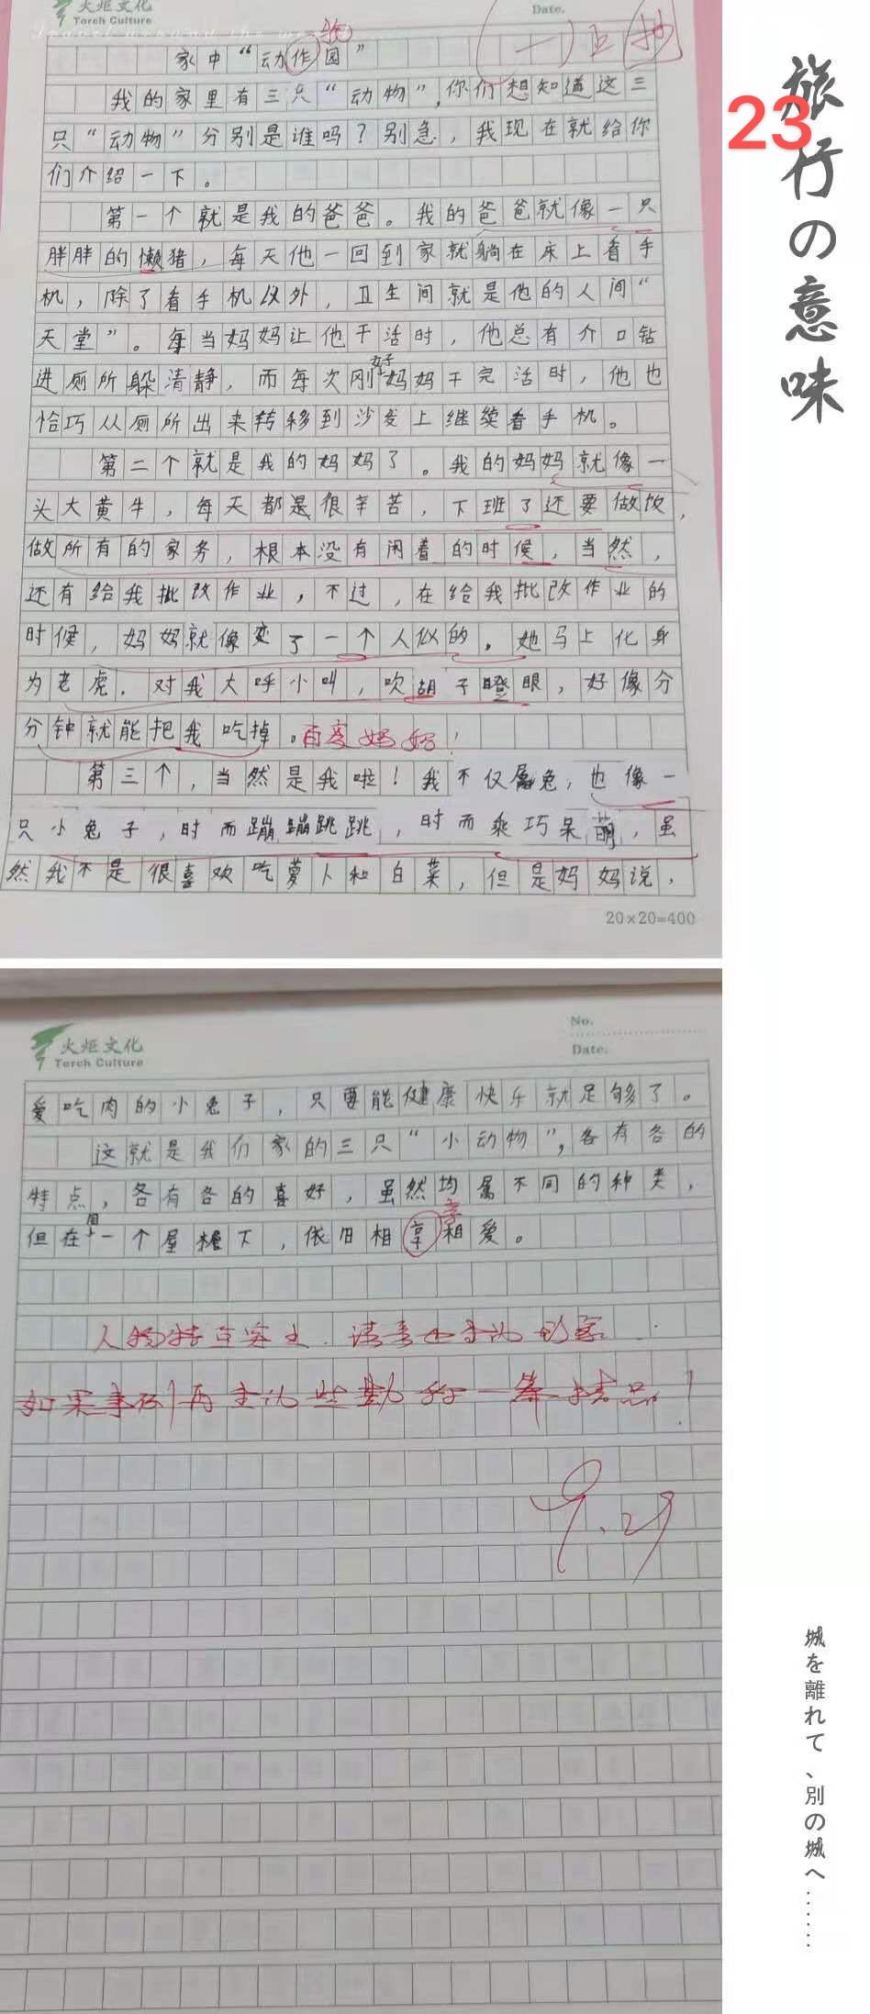 火炬文化
Torch Culture
Date.
物
家中“动作园”
我的家里有三只“动物”，你们想知道这三
只“动物”分别是谁吗？别急，我现在就给你
们介绍一下。
第一个就是我的爸爸。我的爸爸就像一只
胖胖的懒猪，每天他一回到家就躺在床上看手
机，除了看手机以外，卫生间就是他的人间“
天堂”。每当妈妈让他干活时，他总有介口钻
进厕所躲清静，而每次刚好妈妈干完活时，他也
恰巧从厕所出来转移到沙发上继续看手机。
第二个就是我的妈妈了。我的妈妈就像一
头大黄牛，每天都是很辛苦，下班了还要做饭，
做所有的家务，根本没有闲着的时候，当然，
还有给我批改作业，不过，在给我批改作业的
时候，妈妈就像变了一个人似的。她马上化身
为老虎，对我大呼小叫，吹胡子瞪眼，好像分
分钟就能把我吃掉。百变妈妈！
第三个，当然是我啦！我不仅属兔，也像一
只小兔子，时而蹦蹦跳跳，时而乖巧呆萌，虽
然我不是很喜欢吃萝卜和白菜，但是妈妈说，
20×20=400
火炬文化
Torch Culture
No.
Date.
爱吃肉的小兔子，只要能健康快乐就足够了。
这就是我们家的三只“小动物”，各有各的
特点，各有各的喜好，虽然均属不同的种类，
但在同一个屋檐下，依旧相享相爱。
亲
人物特点突出
9.29
23
旅行の意味
城を離れて、別の城へ........